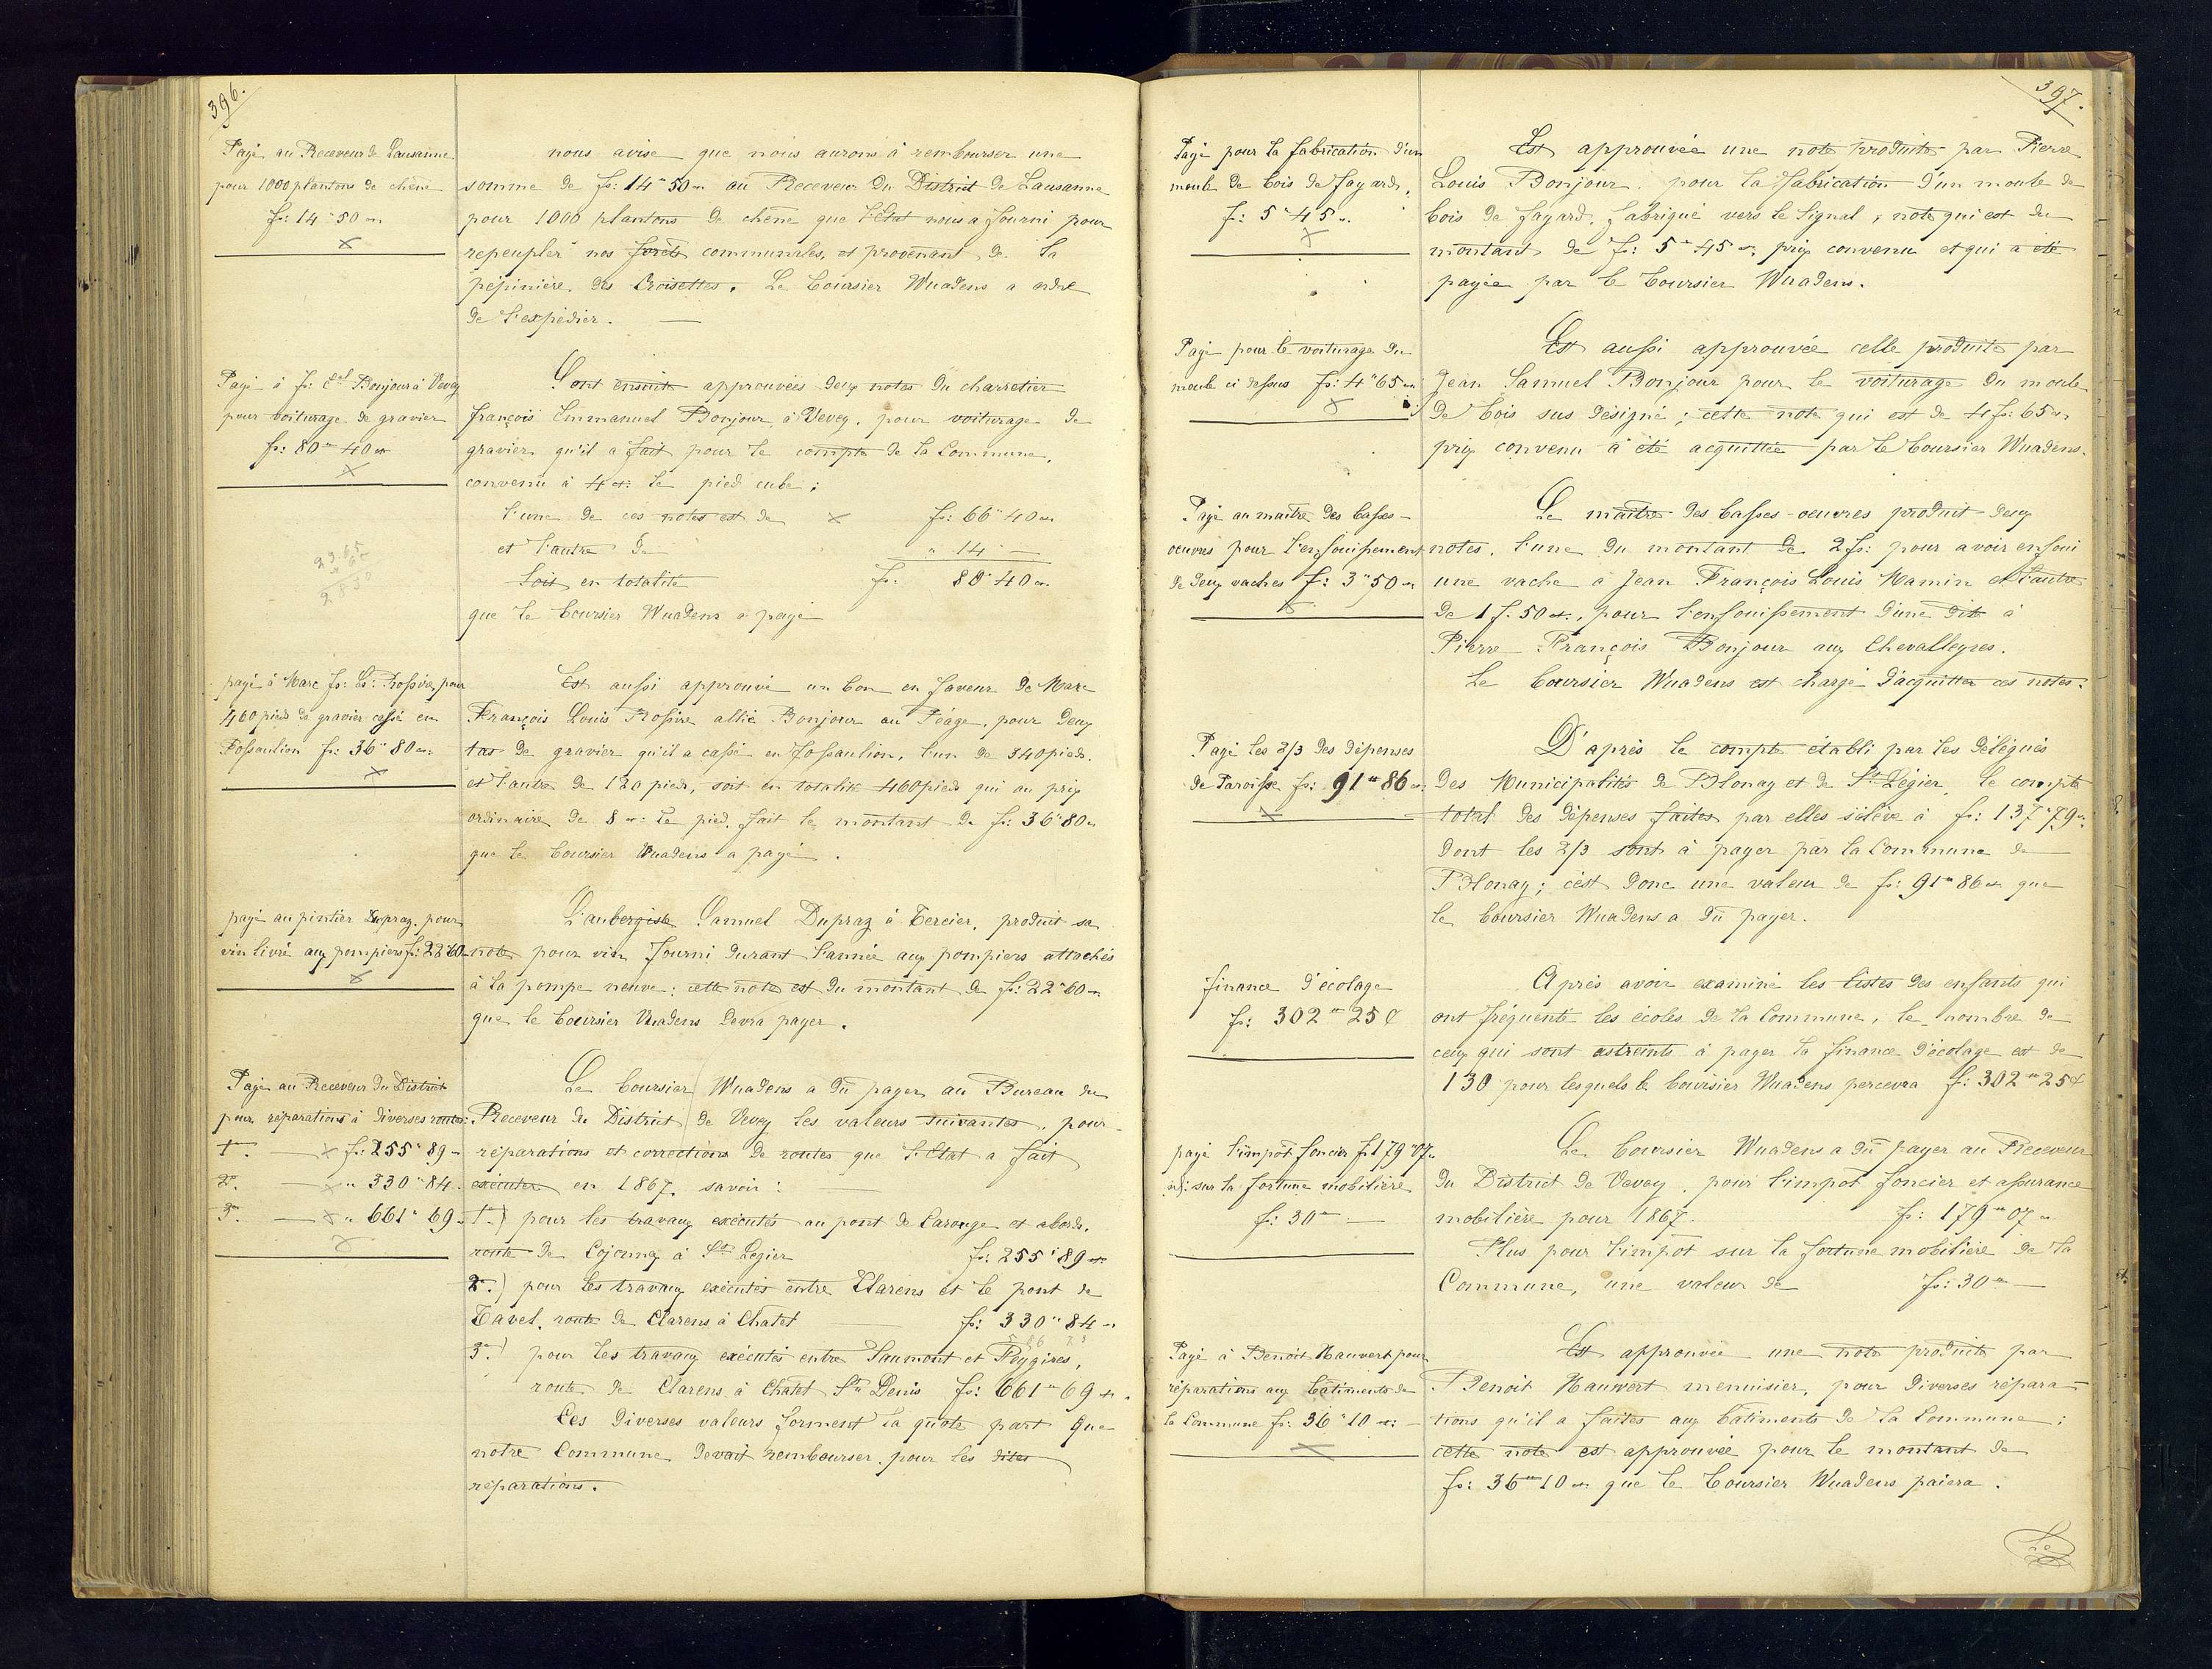 396.
Payé au Receveur de Lausanne
pour 1000 plantons de chêne
fs: 14 " 50 cs
nous avise que nous aurons à rembourser une
somme de fs: 14 " 50 cs au Receveur du District de Lausanne
pour 1000 plantons de chêne que l'Etat nous a fourni pour
repeupler nos forêts communales, et provenant de la
pépinière des Croisettes. Le Boursier Wuadens a ordre
de l'expédier.
Payé à fs: Eel Bonjour à Vevey
pour voiturage de gravier
fs: 80 " 40 cs
Sont ensuite approuvées deux notes du charretier
françois Emmanuel Bonjour, à Vevey, pour voiturage de
gravier qu'il a fait pour le compte de la Commune,
convenu à 4 cs: le pied cube;
l'une de ces notes est de fs: 66 " 40 cs
et l'autre de " 14 " —
Soit en totalité fs: 80 " 40 cs
que le Boursier Wuadens a payé
payé à Marc fs: Ls: Rossire, pour
460 pieds de gravier cassé en
Fossaulion fs: 36 " 80 cs:
Est aussi approuvé un bon en faveur de Marc
François Louis Rossire allié Bonjour au Péage, pour deux
tas de gravier qu'il a cassé en Fossaulion, l'un de 340 pieds,
et l'autre de 120 pieds, soit en totalité 460 pieds qui au prix
ordinaire de 8 cs: le pied, fait le montant de fs: 36 " 80 cs
que le Boursier Wuadens a payé.
payé au pintier Dupraz, pour
vin livré aux pompiers fs: 22 " 60 cs
L'aubergiste Samuel Dupraz à Tercier, produit sa
note pour vin fourni durant l'année aux pompiers attachés
à la pompe neuve: cette note est du montant de fs: 22 " 60 cs
que le Boursier Wuadens devra payer.
Payé au Receveur du District
pour réparations à diverses routes:
1°. — fs: 255 " 89 cs
2°. — " 330 " 84.
3°. — " 661 " 69.
Le Boursier Wuadens a dû payer au Bureau du
Receveur du District de Vevey les valeurs suivantes, pour
réparations et corrections de routes que l'Etat a fait
exécuter en 1867. savoir:
1°.) pour les travaux exécutés au pont de Carouge et abords,
route de Cojonnex à St Légier fs: 255 " 89 cs
2°.) pour les travaux exécutés entre Clarens et le pont de
Tavel, route de Clarens à Chatel — fs: 330 " 84 cs
3°.) pour les travaux exécutés entre Saumont et Peygires,
route de Clarens à Chatel St Denis fs: 661 " 69 cs.
Ces diverses valeurs forment la quote part que
notre Commune devait rembourser, pour les dites
réparations.
397.
Payé pour la fabrication d'un
moule de bois de fayard,
fs: 5 " 45 cs.
Est approuvée une note produite par Pierre
Louis Bonjour, pour la fabrication d'un moule de
bois de fayard, fabriqué vers le Signal; note qui est du
montant de fs: 5 " 45 cs, prix convenu et qui a été
payée par le Boursier Wuadens.
Payé pour le voiturage du
moule ci dessus fs: 4 " 65 cs
Est aussi approuvée celle produite par
Jean Samuel Bonjour pour le voiturage du moule
de bois sus désigné; cette note qui est de 4 fs: 65 cs
prix convenu a été acquittée par le Boursier Wuadens.
Payé au maître des basses-
oeuvres pour l'enfouissement
de deux vaches fs: 3 " 50 cs
Le maître des basses-oeuvres produit deux
notes, l'une du montant de 2 fs: pour avoir enfoui
une vache à Jean François Louis Mamin et l'autre
de 1 f. 50 cs., pour l'enfouissement d'une dite à
Pierre François Bonjour aux Chevalleyres.
Le Boursier Wuadens est chargé d'acquitter ces notes.
Payé les 2/3 des dépenses
de Paroisse fs: 91 " 86 cs.
D'après le compte établi par les délégués
des Municipalités de Blonay et de St Légier, le compte
total des dépenses faites par elles s'élève à fs: 137 " 79 cs.
dont les 2/3 sont à payer par la Commune de
Blonay; c'est donc une valeur de fs: 91 " 86 cs que
le Boursier Wuadens a dû payer.
finance d'écolage
fs: 302 " 25 c
Après avoir examiné les listes des enfants qui
ont fréquenté les écoles de la Commune, le nombre de
ceux qui sont astreints à payer la finance d'écolage est de
130 pour lesquels le boursier Wuadens percevra fs: 302 " 25 c
payé l'impôt foncier fs 179 " 07 cs
id: sur la fortune mobilière
fs: 30 " —
Le Boursier Wuadens a dû payer au Receveur
du District de Vevey, pour l'impôt foncier et assurance
mobilière pour 1867. fs: 179 " 07 cs
Plus pour l'impôt sur la fortune mobilière de la
Commune, une valeur de fs: 30 " —
Payé à Benoit Hauwert pour
réparations aux bâtiments de
la Commune fs: 36 " 10 cs: —
Est approuvée une note produite par
Benoit Hauwert menuisier, pour diverses répara-
tions qu'il a faites aux bâtiments de la Commune;
cette note est approuvée pour le montant de
fs: 36 " 10 cs que le Boursier Wuadens paiera.